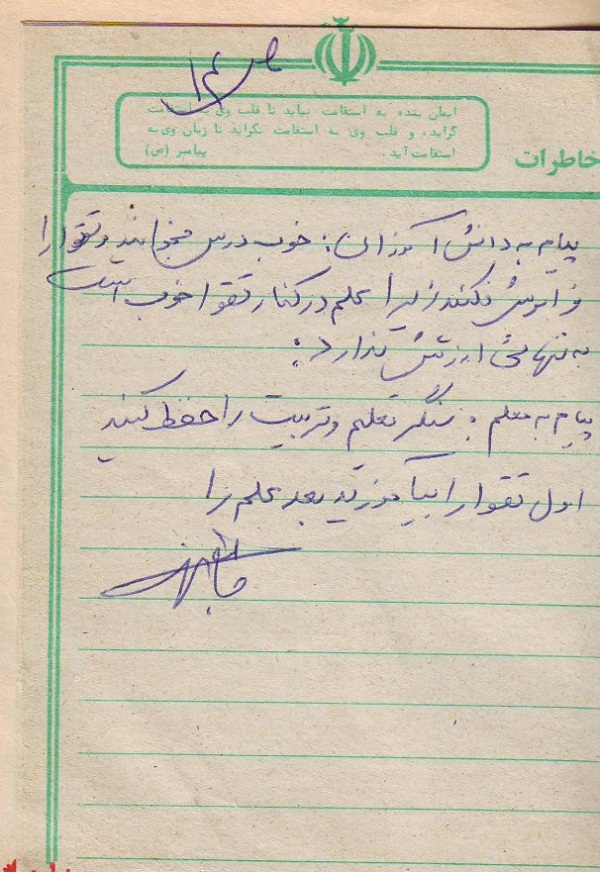 ص ۱۴
ایمان بنده به استقامت نیاید تا قلب وی به استقامت
گراید، و قلب وی به استقامت نگراید تا زبان وی به
استقامت آید. پیامبر (ص)
خاطرات
پیام به دانش آموزان: خوب درس بخوانید و تقوا را
فراموش نکنند زیرا علم در کنار تقوا خوب است
به تنهائی ارزش ندارد:
پیام به معلم: سنگر تعلیم و تربیت را حفظ کنید
اول تقوا را بیاموزید بعد علم را